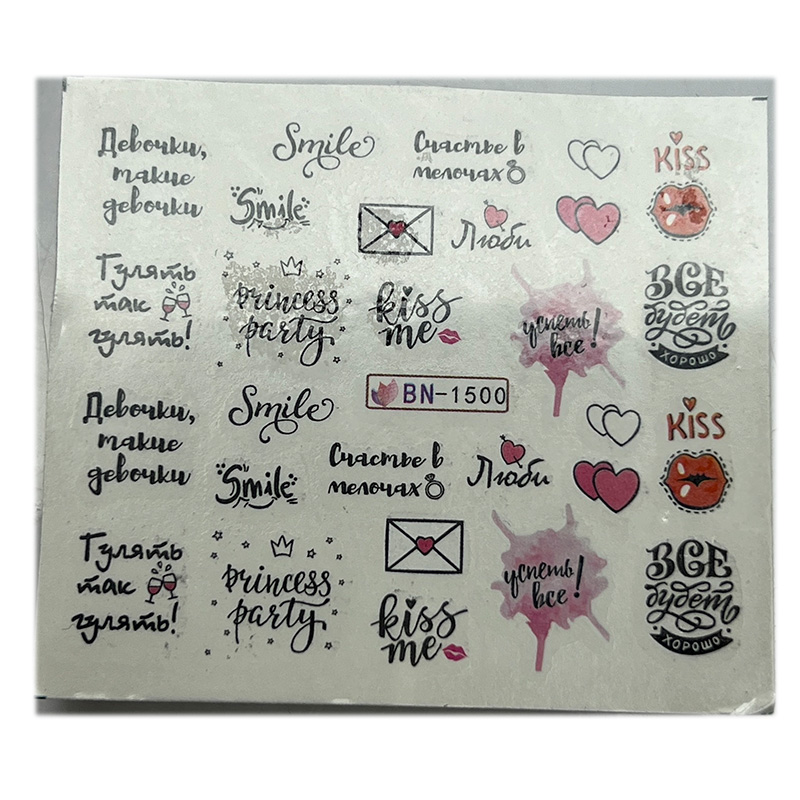 Девочки,
такие
девочки
Smile
Smile
Счастье в
мелочах
Kiss
Люби
Гулять
так
гулять!
princess
party
kiss
me
успеть
все!
ВСЕ
будет
ХОРОШО
BN-1500
Девочки,
такие
девочки
Smile
Smile
Счастье в
мелочах
Люби
Kiss
Гулять
так
гулять!
princess
party
kiss
me
успеть
все!
ВСЕ
будет
ХОРОШО